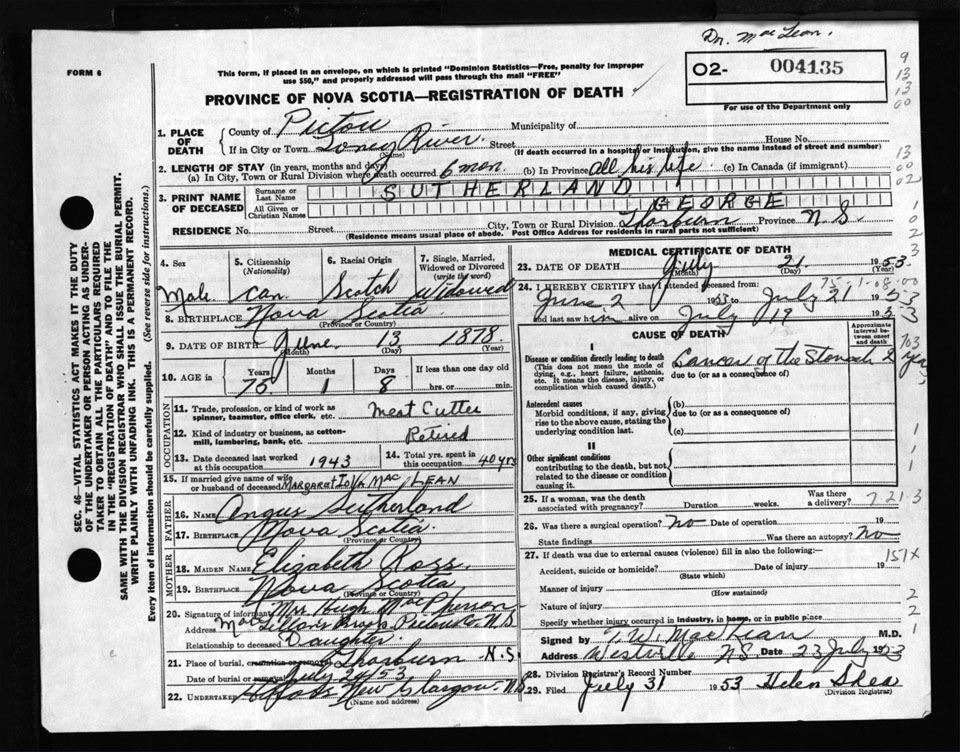 Dr. MacLean.
FORM 6
This form, if placed in an envelope, on which is printed "Dominion Statistics—Free, penalty for improper
use $50," and properly addressed will pass through the mail "FREE"
02- 004135
For use of the Department only
PROVINCE OF NOVA SCOTIA—REGISTRATION OF DEATH
1. PLACE OF DEATH
County of Pictou Municipality of
If in City or Town Toney River Street House No.
(Name) (If death occurred in a hospital or institution, give the name instead of street and number)
2. LENGTH OF STAY (in years, months and days)
(a) In City, Town or Rural Division where death occurred 6 mon. (b) In Province all his life. (c) In Canada (if immigrant)
3. PRINT NAME OF DECEASED
Surname or Last Name SUTHERLAND
All Given or Christian Names GEORGE
RESIDENCE No. Street City, Town or Rural Division Thorburn Province N S
(Residence means usual place of abode. Post Office Address for residents in rural parts not sufficient)
4. Sex Male
5. Citizenship (Nationality) Can.
6. Racial Origin Scotch
7. Single, Married, Widowed or Divorced (write the word) Widowed
8. BIRTHPLACE Nova Scotia
(Province or Country)
9. DATE OF BIRTH June 13 1878
(Month) (Day) (Year)
10. AGE in Years Months Days If less than one day old
75 1 8 hrs. or min.
OCCUPATION
11. Trade, profession, or kind of work as spinner, teamster, office clerk, etc. Meat Cutter
12. Kind of industry or business, as cotton-mill, lumbering, bank, etc. Retired
13. Date deceased last worked at this occupation 1943
14. Total yrs. spent in this occupation 40 yrs
15. If married give name of wife or husband of deceased MARGARET MAC LEAN
FATHER
16. NAME Angus Sutherland
17. BIRTHPLACE Nova Scotia
(Province or Country)
MOTHER
18. MAIDEN NAME Elizabeth Ross
19. BIRTHPLACE Nova Scotia
(Province or Country)
20. Signature of informant Mrs. Hugh MacPherson
Address N.S.
Relationship to deceased Daughter.
21. Place of burial, cremation or removal Thorburn N.S.
Date of burial or removal July 24/53
22. Undertaker New Glasgow, N.S.
(Name and address)
MEDICAL CERTIFICATE OF DEATH
23. DATE OF DEATH July 21 1953
(Month) (Day) (Year)
24. I HEREBY CERTIFY that I attended deceased from:
June 2 1953 to July 21 1953
and last saw him alive on July 19 1953
CAUSE OF DEATH
Approximate interval between onset and death
I
Disease or condition directly leading to death
(This does not mean the mode of dying, e.g., heart failure, asthenia, etc. It means the disease, injury, or complication which caused death.)
(a) Cancer of the Stomach 2 years
due to (or as a consequence of)
Antecedent causes
Morbid conditions, if any, giving rise to the above cause, stating the underlying condition last.
(b)
due to (or as a consequence of)
(c)
II
Other significant conditions
contributing to the death, but not related to the disease or condition causing it.
25. If a woman, was the death associated with pregnancy? Duration weeks. Was there a delivery?
7-21-3
26. Was there a surgical operation? No Date of operation 19
State findings Was there an autopsy? No
27. If death was due to external causes (violence) fill in also the following:—
Accident, suicide or homicide? Date of injury 19
(State which)
151X
Manner of injury
(How sustained)
Nature of injury
Specify whether injury occurred in industry, in home, or in public place
Signed by T. W. MacLean M.D.
Address Westville N.S. Date 23 July 1953
28. Division Registrar's Record Number
29. Filed July 31 1953 Helen Shea
(Division Registrar)
SEC. 46—VITAL STATISTICS ACT MAKES IT THE DUTY
OF THE UNDERTAKER OR PERSON ACTING AS UNDER-
TAKER TO OBTAIN ALL THE PARTICULARS REQUIRED
IN THE "REGISTRATION OF DEATH" AND TO FILE THE
SAME WITH THE DIVISION REGISTRAR WHO SHALL ISSUE THE BURIAL PERMIT.
WRITE PLAINLY WITH UNFADING INK. THIS IS A PERMANENT RECORD.
Every item of information should be carefully supplied. (See reverse side for instructions.)